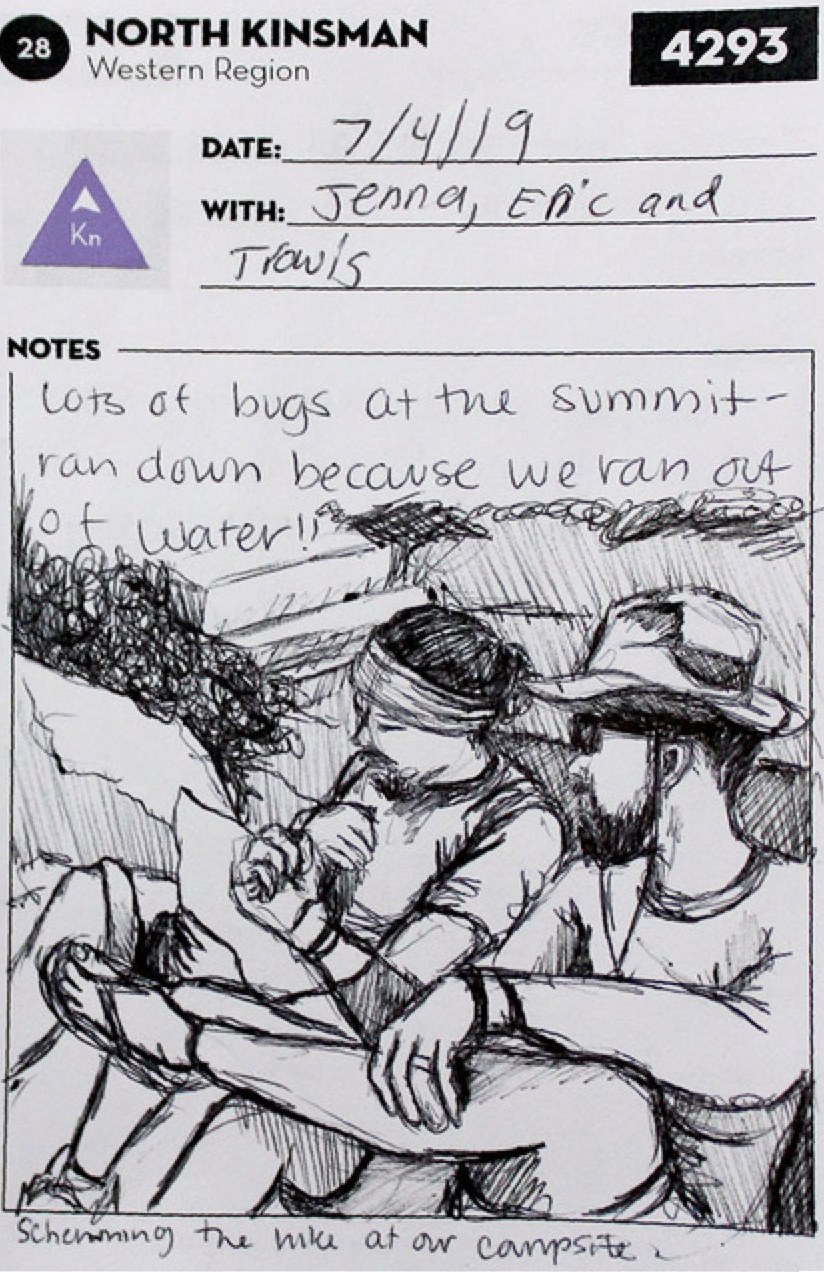 28 NORTH KINSMAN 4293
Western Region
DATE: 7/4/19
WITH: Jenna, Eric and
Travis
Kn
NOTES
Lots of bugs at the summit -
ran down because we ran out
of water!!
schemming the hike at our campsite.